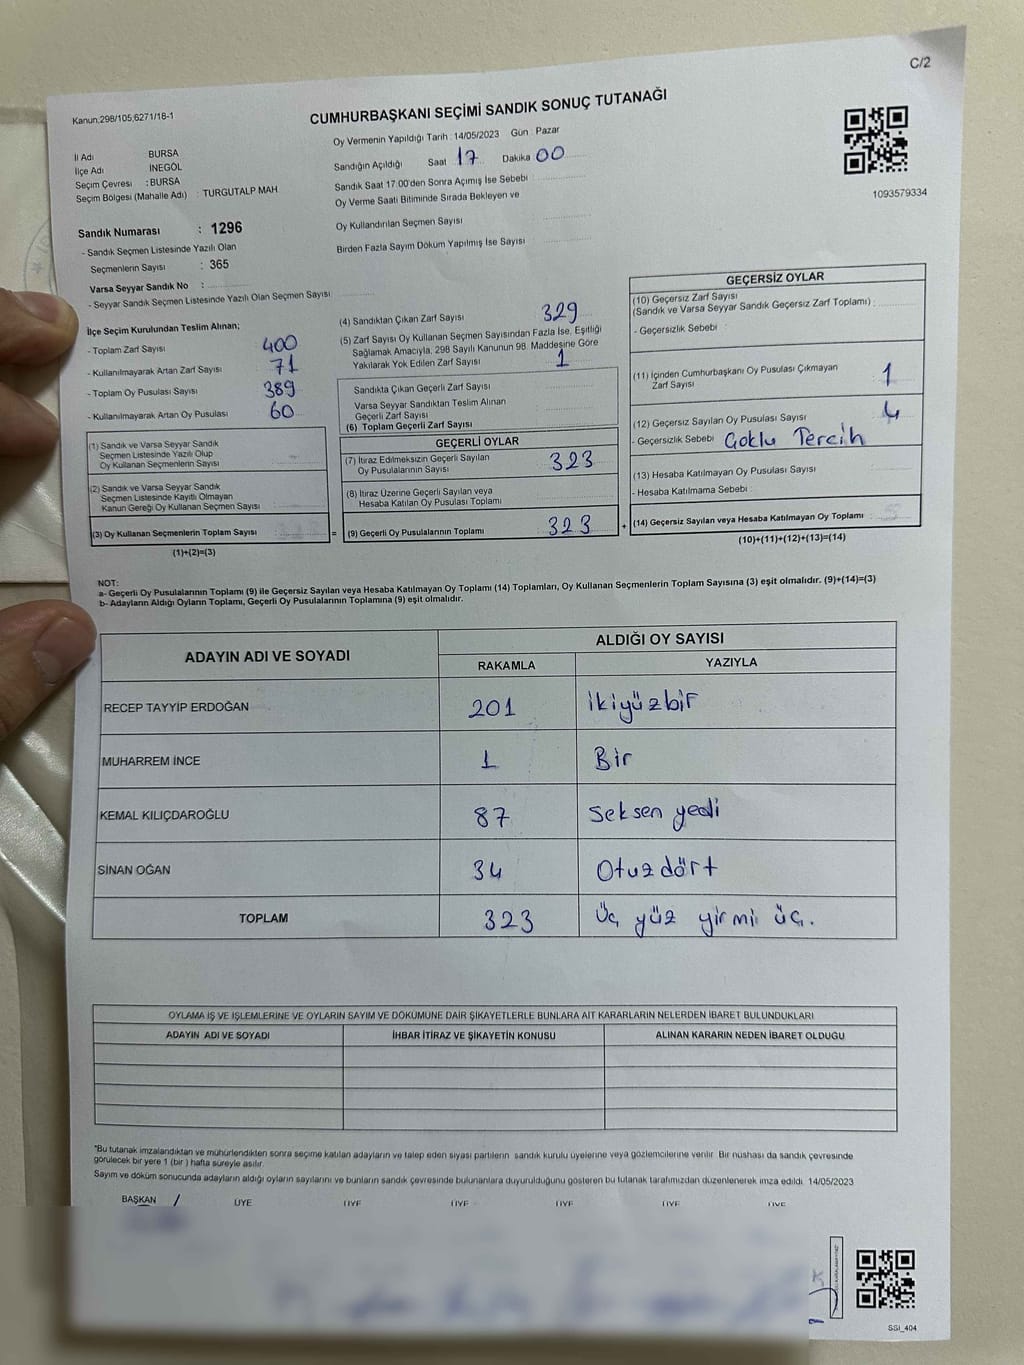 C/2
Kanun,298/105;6271/18-1
CUMHURBAŞKANI SEÇİMİ SANDIK SONUÇ TUTANAĞI
Oy Vermenin Yapıldığı Tarih : 14/05/2023 Gün : Pazar
1093579334
İl Adı BURSA
İlçe Adı İNEGÖL
Seçim Çevresi : BURSA
Seçim Bölgesi (Mahalle Adı) : TURGUTALP MAH
Sandığın Açıldığı Saat 17 Dakika 00
Sandık Saat 17:00'den Sonra Açılmış İse Sebebi
Oy Verme Saati Bitiminde Sırada Bekleyen ve
Oy Kullandırılan Seçmen Sayısı
Birden Fazla Sayım Döküm Yapılmış İse Sayısı
Sandık Numarası : 1296
- Sandık Seçmen Listesinde Yazılı Olan
Seçmenlerin Sayısı : 365
Varsa Seyyar Sandık No :
- Seyyar Sandık Seçmen Listesinde Yazılı Olan Seçmen Sayısı
İlçe Seçim Kurulundan Teslim Alınan;
- Toplam Zarf Sayısı 400
- Kullanılmayarak Artan Zarf Sayısı 71
- Toplam Oy Pusulası Sayısı 389
- Kullanılmayarak Artan Oy Pusulası 60
(1) Sandık ve Varsa Seyyar Sandık
Seçmen Listesinde Yazılı Olup
Oy Kullanan Seçmenlerin Sayısı
(2) Sandık ve Varsa Seyyar Sandık
Seçmen Listesinde Kayıtlı Olmayan
Kanun Gereği Oy Kullanan Seçmen Sayısı
(3) Oy Kullanan Seçmenlerin Toplam Sayısı
=
(1)+(2)=(3)
(4) Sandıktan Çıkan Zarf Sayısı 329
(5) Zarf Sayısı Oy Kullanan Seçmen Sayısından Fazla İse, Eşitliği
Sağlamak Amacıyla, 298 Sayılı Kanunun 98. Maddesine Göre
Yakılarak Yok Edilen Zarf Sayısı 1
Sandıkta Çıkan Geçerli Zarf Sayısı
Varsa Seyyar Sandıktan Teslim Alınan
Geçerli Zarf Sayısı
(6) Toplam Geçerli Zarf Sayısı
GEÇERLİ OYLAR
(7) İtiraz Edilmeksizin Geçerli Sayılan
Oy Pusulalarının Sayısı 323
(8) İtiraz Üzerine Geçerli Sayılan veya
Hesaba Katılan Oy Pusulası Toplamı
(9) Geçerli Oy Pusulalarının Toplamı 323
+
GEÇERSİZ OYLAR
(10) Geçersiz Zarf Sayısı
(Sandık ve Varsa Seyyar Sandık Geçersiz Zarf Toplamı) :
- Geçersizlik Sebebi :
(11) İçinden Cumhurbaşkanı Oy Pusulası Çıkmayan
Zarf Sayısı 1
(12) Geçersiz Sayılan Oy Pusulası Sayısı 4
- Geçersizlik Sebebi Çoklu Tercih
(13) Hesaba Katılmayan Oy Pusulası Sayısı
- Hesaba Katılmama Sebebi :
(14) Geçersiz Sayılan veya Hesaba Katılmayan Oy Toplamı : 5
(10)+(11)+(12)+(13)=(14)
NOT:
a- Geçerli Oy Pusulalarının Toplamı (9) ile Geçersiz Sayılan veya Hesaba Katılmayan Oy Toplamı (14) Toplamları, Oy Kullanan Seçmenlerin Toplam Sayısına (3) eşit olmalıdır. (9)+(14)=(3)
b- Adayların Aldığı Oyların Toplamı, Geçerli Oy Pusulalarının Toplamına (9) eşit olmalıdır.
ADAYIN ADI VE SOYADI ALDIĞI OY SAYISI
RAKAMLA YAZIYLA
RECEP TAYYİP ERDOĞAN 201 ikiyüzbir
MUHARREM İNCE 1 Bir
KEMAL KILIÇDAROĞLU 87 Seksen yedi
SİNAN OĞAN 34 Otuzdört
TOPLAM 323 üç yüz yirmi üç.
OYLAMA İŞ VE İŞLEMLERİNE VE OYLARIN SAYIM VE DÖKÜMÜNE DAİR ŞİKAYETLERLE BUNLARA AİT KARARLARIN NELERDEN İBARET BULUNDUKLARI
ADAYIN ADI VE SOYADI İHBAR İTİRAZ VE ŞİKAYETİN KONUSU ALINAN KARARIN NEDEN İBARET OLDUĞU
*Bu tutanak imzalandıktan ve mühürlendikten sonra seçime katılan adayların ve talep eden siyasi partilerin sandık kurulu üyelerine veya gözlemcilerine verilir. Bir nüshası da sandık çevresinde
görülecek bir yere 1 (bir) hafta süreyle asılır.
Sayım ve döküm sonucunda adayların aldığı oyların sayılarını ve bunların sandık çevresinde bulunanlara duyurulduğunu gösteren bu tutanak tarafımızdan düzenlenerek imza edildi. 14/05/2023
BAŞKAN ÜYE ÜYE ÜYE ÜYE ÜYE ÜYE
SSI_404